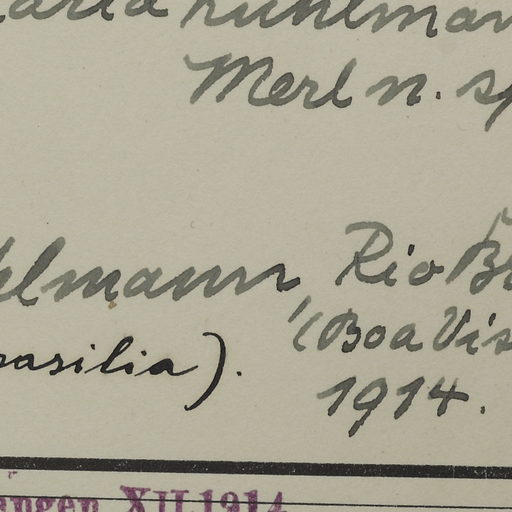 kuhlman
Merl n. sp
lmann, Rio Br
(Boa Vis
rasilia). 1914.
angen XII.1914